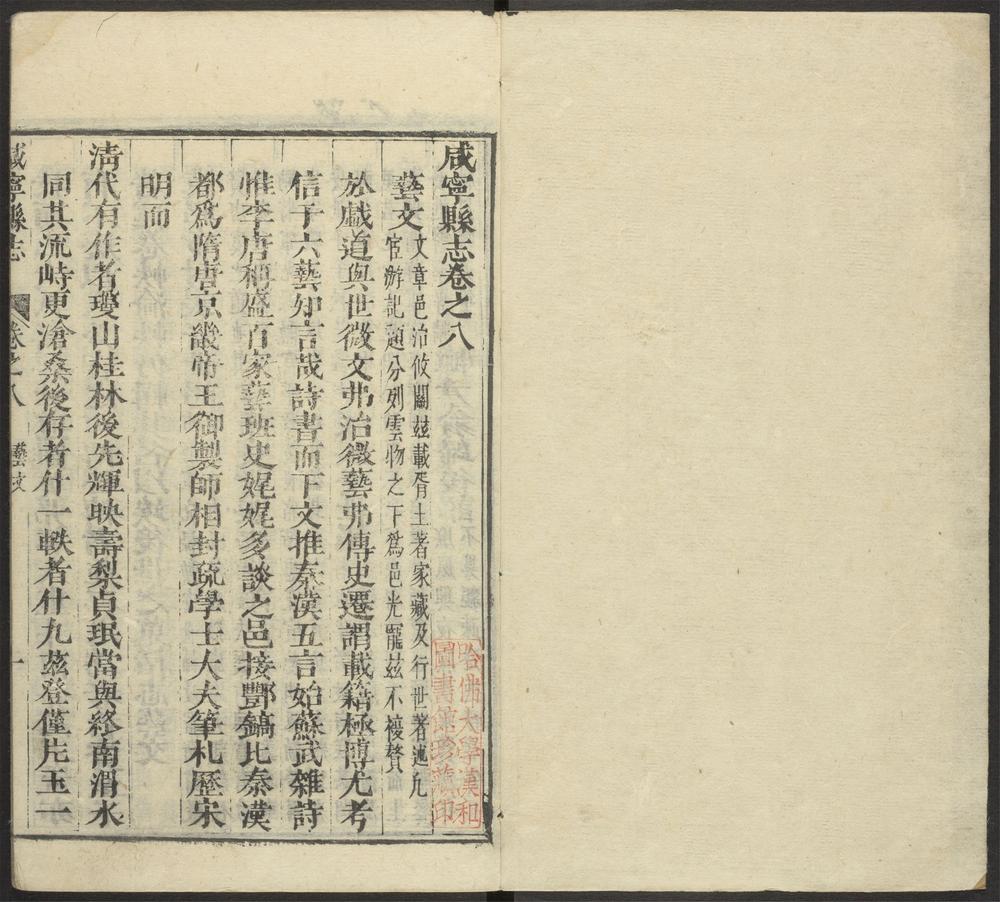 咸寧縣志卷之八
藝文
文章邑治攸關茲載胥土著家藏及行世著述凡
宦游記題分列雲物之下爲邑光寵茲不複贅
於戲道與世微文弗治微藝弗傳史遷謂載籍極博尤考
信于六藝知言哉詩書而下文推秦漢五言始蘇武雜詩
惟李唐稱盛百家藝班史娓娓多談之邑接酆鎬比秦漢
都爲隋唐京畿帝王御製師相封疏學士大夫筆札歷宋
明而
清代有作者瓊山桂林後先輝映壽梨貞珉當與終南渭水
同其流峙更滄桑後存者什一軼者什九茲登僅片玉一
咸寧縣志 卷之八 藝文 一
哈佛大學漢和
圖書館珍藏印